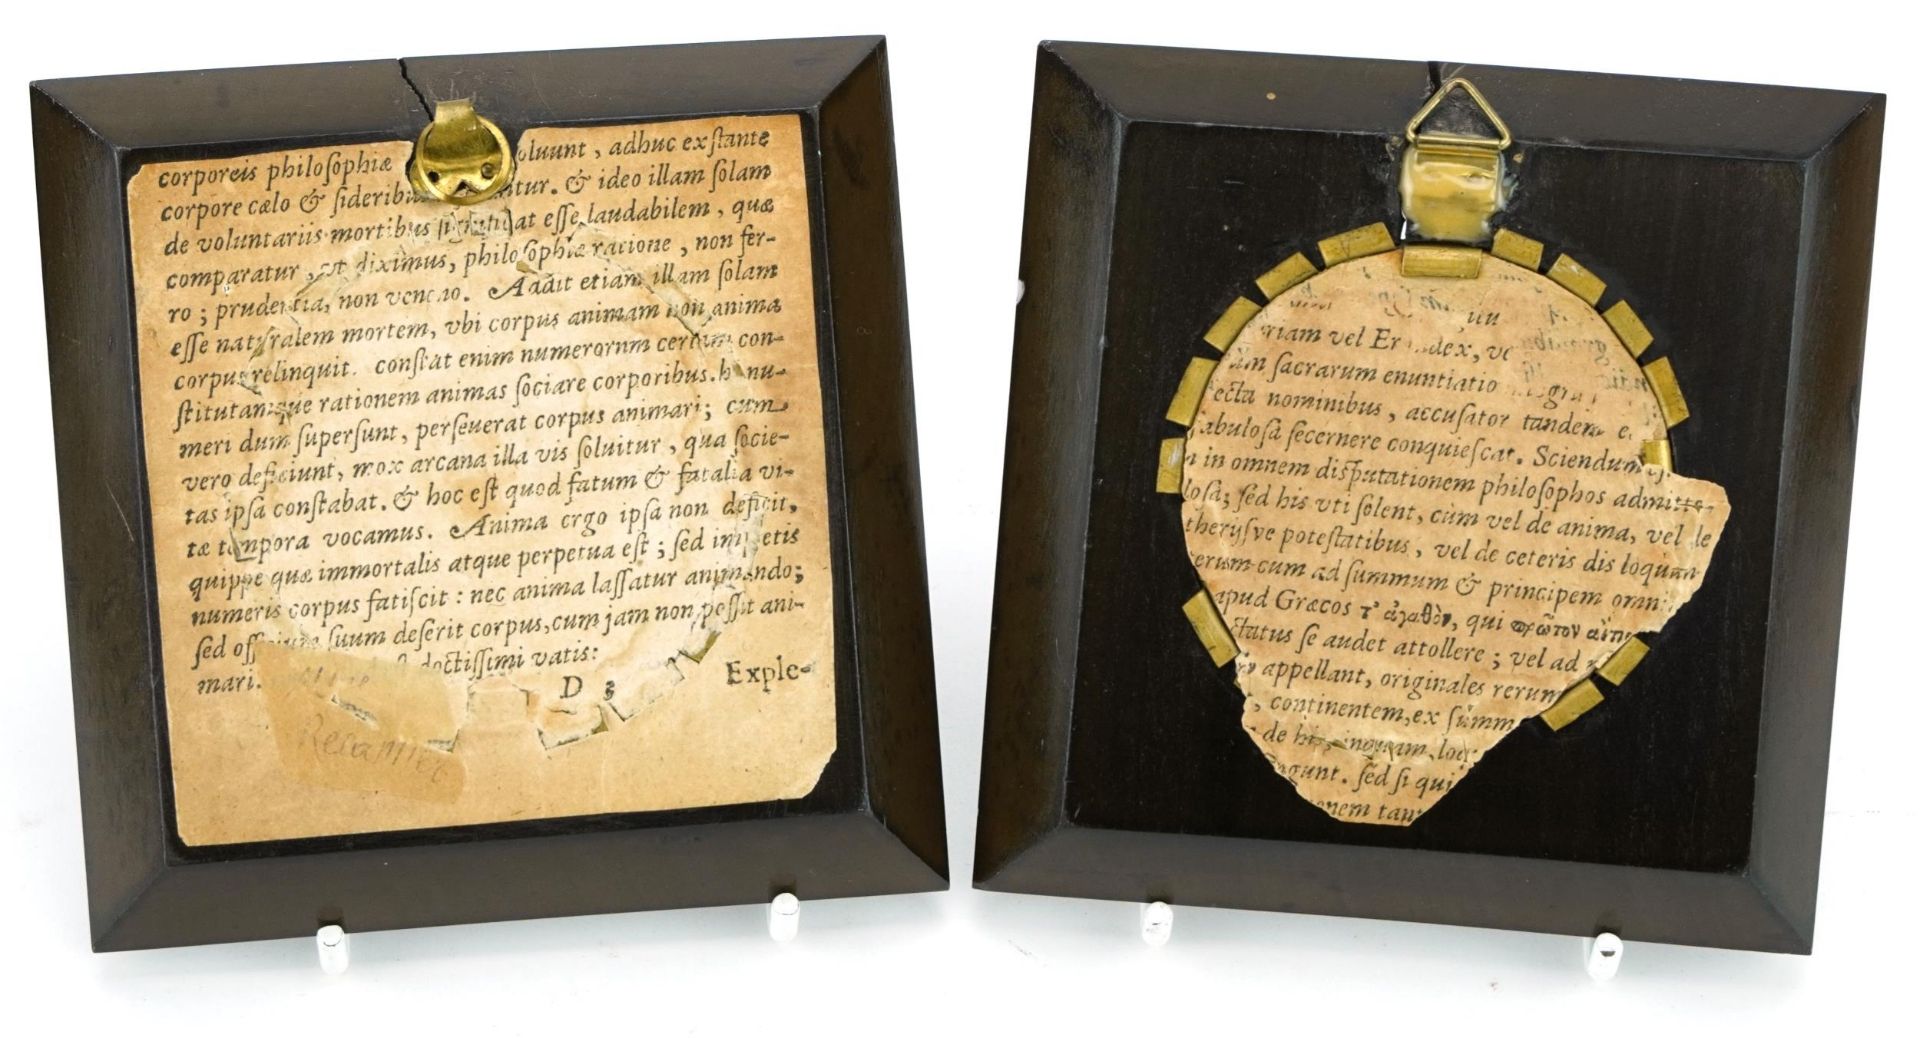 corporeis philosophiæ oluunt, adhuc exstante
corpore cælo & sideribus itur. & ideo illam solam
de voluntariis mortibus significat esse laudabilem, quæ
comparatur, ut diximus, philosophiæ racione, non fer-
ro; prudentia, non veneno. Addit etiam illam solam
esse naturalem mortem, vbi corpus animam non anima
corpus relinquit. constat enim numerornm certam con-
stitutamque rationem animas sociare corporibus. hi nu-
meri dum supersunt, perseuerat corpus animari; cum
vero deficiunt, mox arcana illa vis soluitur, qua socie-
tas ipsa constabat. & hoc est quod fatum & fatalia vi-
tæ tempora vocamus. Anima ergo ipsa non deficit,
quippe quæ immortalis atque perpetua est; sed impletis
numeris corpus fatiscit: nec anima lassatur animando;
sed officium suum deserit corpus, cum jam non possit ani-
mari. doctissimi vatis:
D 3 Exple-
Recamier
uu
riam vel Er dex, ve
um sacrarum enuntiatio
ecta nominibus, accusator tandem e
abulosa secernere conquiescat. Sciendum est
n in omnem disputationem philosophos admitte-
losa; sed his vti solent, cùm vel de anima, vel de
theryſve potestatibus, vel de ceteris dis loquun
erum cum ad summum & principem omni
apud Græcos τ' ἀγαθὸν, qui πρῶτον αἴτι
ctatus se audet attollere; vel ad
appellant, originales rerum
, continentem, ex summ
de his, inquam, loq
ngunt. sed si qui
onem tan